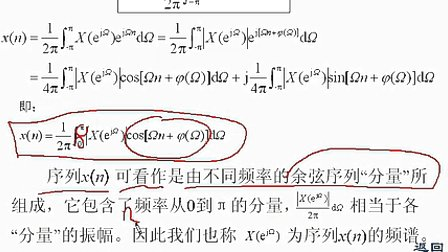 2π
x(n) = 1/2π ∫_{-π}^{π} X(e^{jΩ})e^{jΩn}dΩ = 1/2π ∫_{-π}^{π} |X(e^{jΩ})| e^{j[Ωn+φ(Ω)]}dΩ
= 1/4π ∫_{-π}^{π} |X(e^{jΩ})| cos[Ωn + φ(Ω)]dΩ + j 1/4π ∫_{-π}^{π} |X(e^{jΩ})| sin[Ωn + φ(Ω)]dΩ
即:
x(n) = 1/2π ∫ |X(e^{jΩ})| cos[Ωn + φ(Ω)]dΩ
序列x(n) 可看作是由不同频率的余弦序列“分量”所
组成，它包含了频率从0到 π 的分量，|X(e^{jΩ})|/2π dΩ 相当于各
“分量”的振幅。因此我们也称 X(e^{jΩ}) 为序列x(n)的频谱。
返回